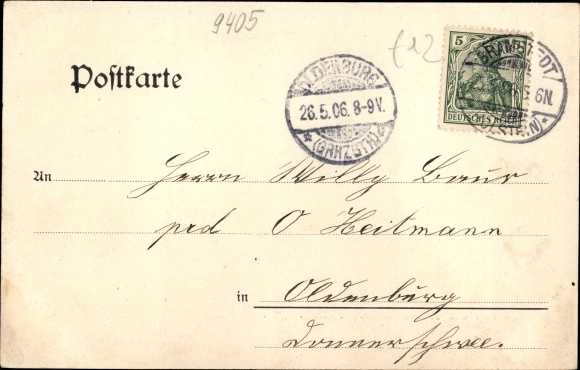 9405
5
DEUTSCHES REICH
BRAMSTEDT
6N.
(HOLSTEIN)
OLDENBURG
26.5.06. 8-9V.
* (GRHZGTH.)
Postkarte
An Herrn Willy Baur
prd O Heitmann
in Oldenburg
Donnerschwee.